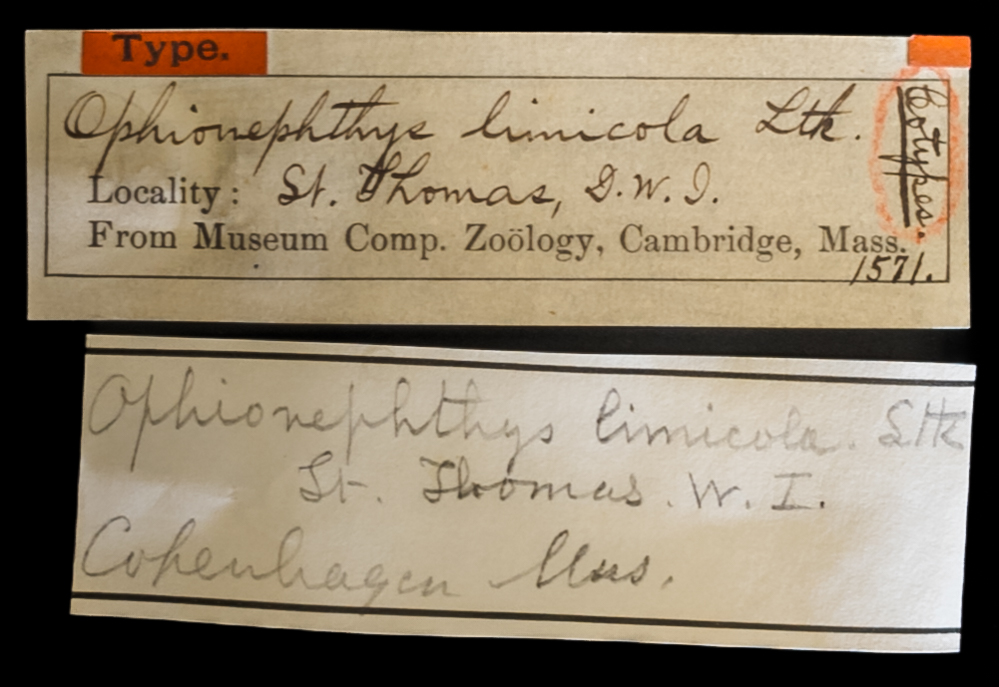 Type.
Ophionephthys limicola Ltk.
Cotypes.
Locality: St. Thomas, D.W.I.
From Museum Comp. Zoölogy, Cambridge, Mass.
1571.
Ophionephthys limicola. Ltk
St. Thomas. W. I.
Copenhagen Mus.